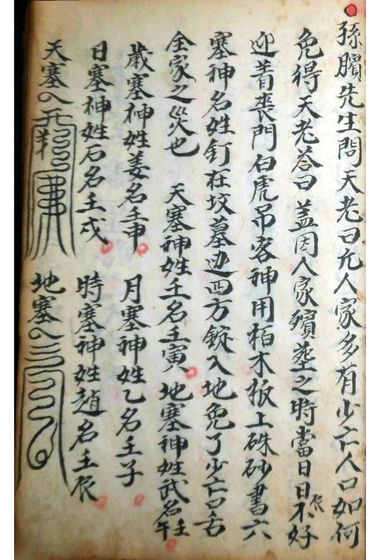 孫臏先生問天老曰凡人家多有少亡人口如何
免得天老答曰蓋因人家殯葬之時當日日不好辰
迎着喪門白虎吊客神用柏木板上硃砂書六
塞神名姓釘在坟墓边西方錠入地免了少亡口舌
全家之災也 天塞神姓王名壬寅 地塞神姓武名壬午
歲塞神姓姜名壬申 月塞神姓乙名壬子
日塞神姓石名壬戍 時塞神姓趙名壬辰
天塞 地塞